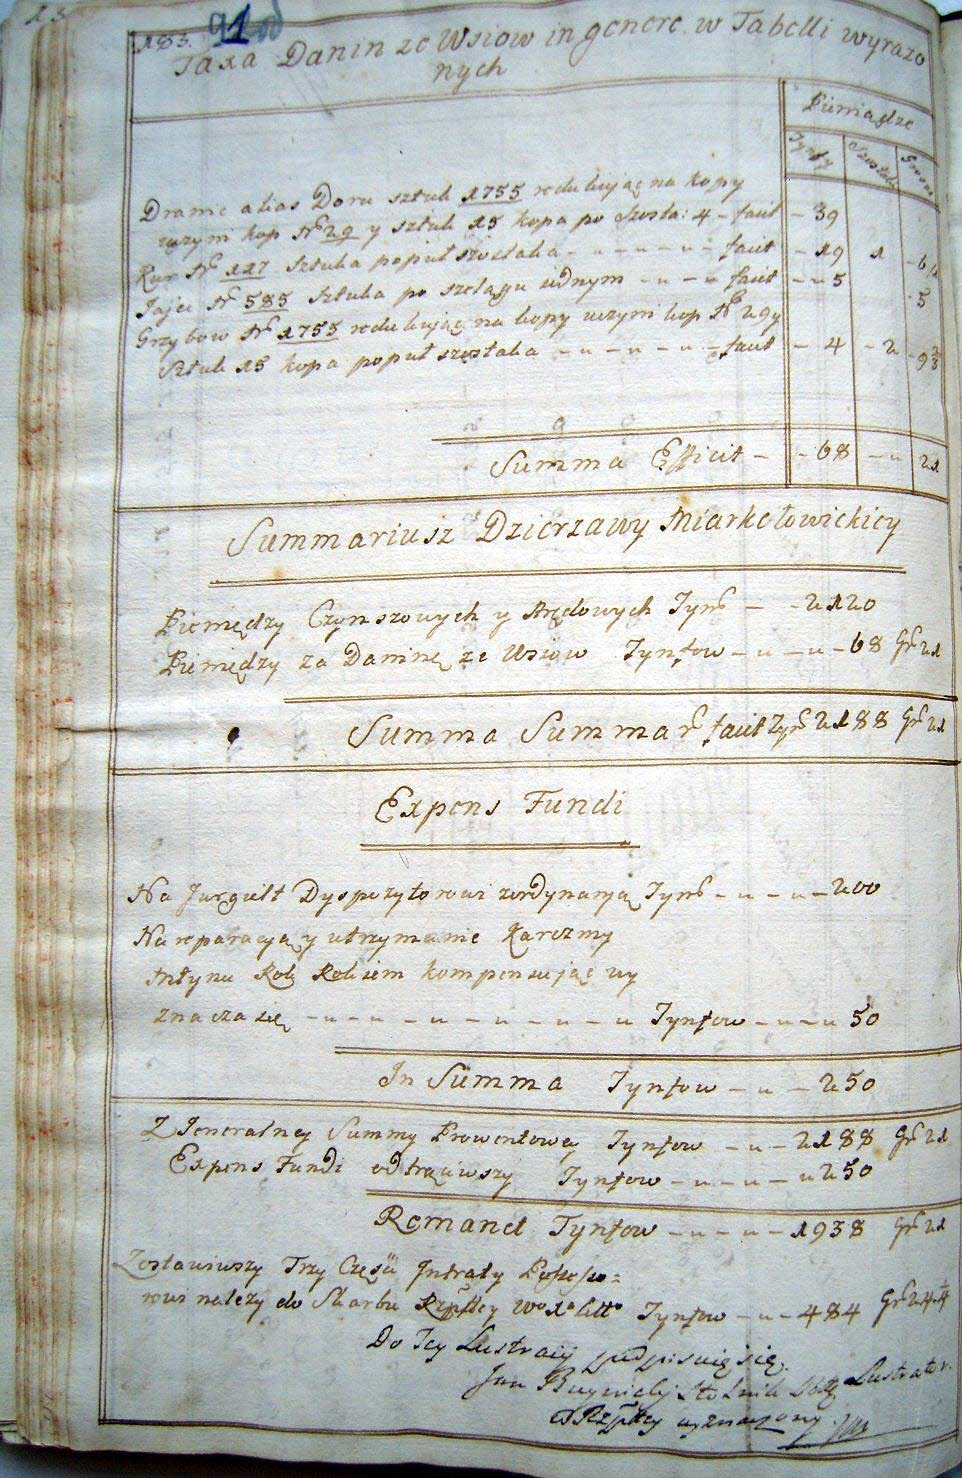 183.
91
Taxa Danin ze Wsiow in genere w Tabelli wyrazo
nych
Pieniądze
Tynfy Szostaki Grosze
Dranic alias Doru sztuk 1755 redukuiąc na kopy
uczyni kop N 29 y sztuk 15 kopa po Szosta: 4 - facit - 39
Kur N 117 Sztuka poputszostaka - facit - 19 1 - 6
Jaja N 585 Sztuka po szelągu iednym - facit - 5 - 5
Grzybow N 1755 redukuiąc na kopy uczyni kop N 29 y
Sztuk 15 kopa poputszostaka - facit - 4 - 2 - 9 2/3
Summa Efficit - - 68 - 21
Summariusz Dzierzawy Miarkotowickiey
Pieniędzy Czynszowych y Arędowych Tynf - - 2120
Pieniędzy za Daninę ze Wsiow Tynfow - 68 Gr 21
Summa Summar facit Tynf 2188 Gr 21
Expens Fundi
Na Jurgielt Dyspozytorowi zordynaryą Tynf - 200
Na reparacyą y utrzymanie Karczmy
Młyna Rok Rokiem kompensuiąc wy
znacza się - Tynfow - 50
In Summa Tynfow - 250
Z Jeneralney Summy Prowentowey Tynfow - 2188 Gr 21
Expens Fundi odtrąciwszy Tynfow - 250
Remanet Tynfow - 1938 Gr 21
Zostawiwszy Trzy Części Intraty Possesso=
rowi należy do Skarbu Rzpltey Tynfow - 484 Gr 24
Do Tey Lustracij podpisuię się
Jan Stolnik Lustrator
od Rzptey wyznaczony